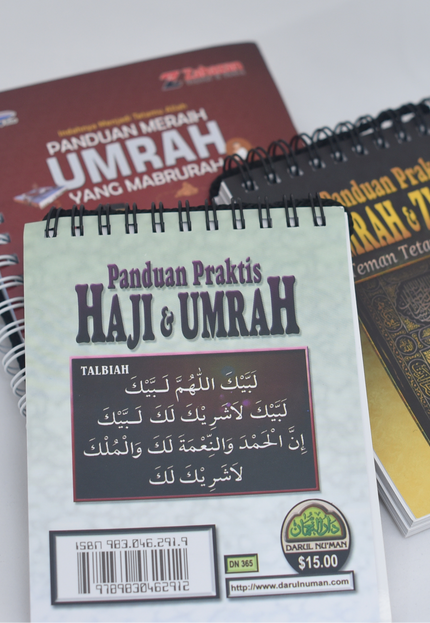 Indahnya Menjadi Tetamu Allah
PANDUAN MERAIH
UMRAH
YANG MABRURAH
Panduan Prak
RAH &
Teman Teta
Panduan Praktis
HAJI & UMRAH
TALBIAH
لَبَّيْكَ اللّٰهُمَّ لَـبَّيْكَ
لَبَّيْكَ لَاشَرِيْكَ لَكَ لَـبَّيْكَ
إِنَّ الْحَمْدَ وَالنِّعْمَةَ لَكَ وَالْمُلْكَ
لَاشَرِيْكَ لَكَ
ISBN 983.046.291.9
9789830462912
DN 365
دار النعمان
DARUL NU'MAN
$15.00
http://www.darulnuman.com